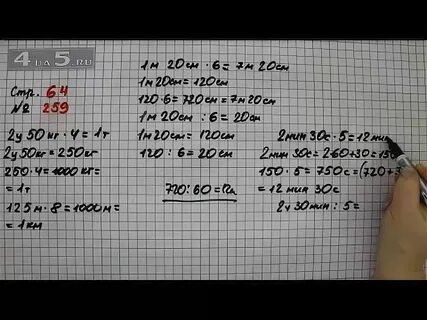 4 да 5.RU
Стр. 64
№ 259
2ц 50кг · 4 = 1т
2ц 50кг = 250кг
250 · 4 = 1000кг =
= 1т
125м · 8 = 1000м =
= 1км
1м 20см · 6 = 7м 20см
1м 20см = 120см
120 · 6 = 720см = 7м 20см
1м 20см : 6 = 20см
1м 20см = 120см
120 : 6 = 20см
720 : 60 =
2мин 30с · 5 = 12мин
2мин 30с = 2·60+30 = 150
150 · 5 = 750с = (720+3
= 12мин 30с
2ч 30мин : 5 =